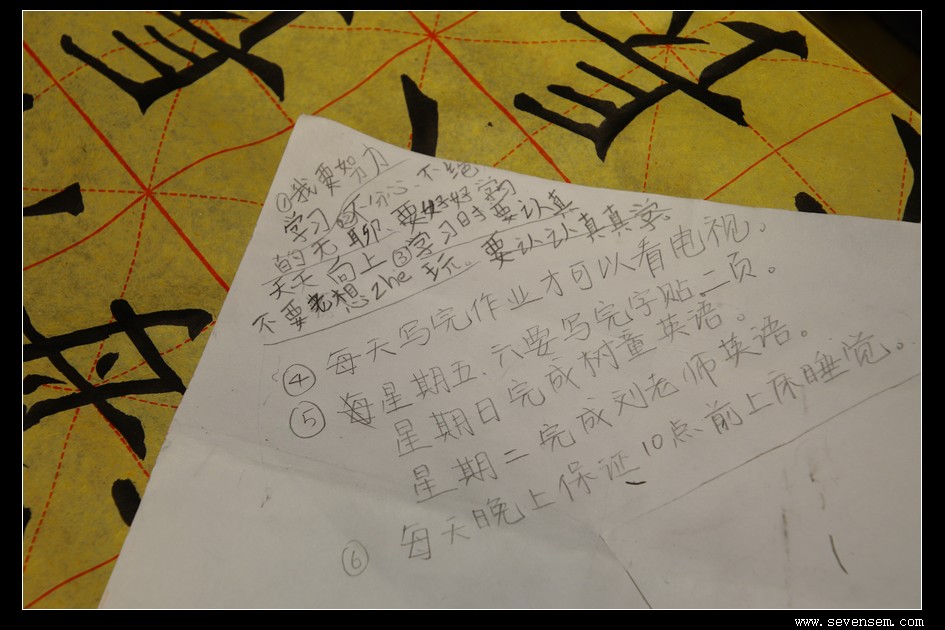 ①我要努力
学习②不分心、不
的无聊 要好好学习
天天向上③学习时要认真
不要老想zhe 玩。要认认真真学
④ 每天写完作业才可以看电视。
⑤ 星期五、六要写完字贴二页。
星期日完成树童英语。
星期二完成刘老师英语。
⑥ 每天晚上保证10点前上床睡觉。
www.sevensem.com